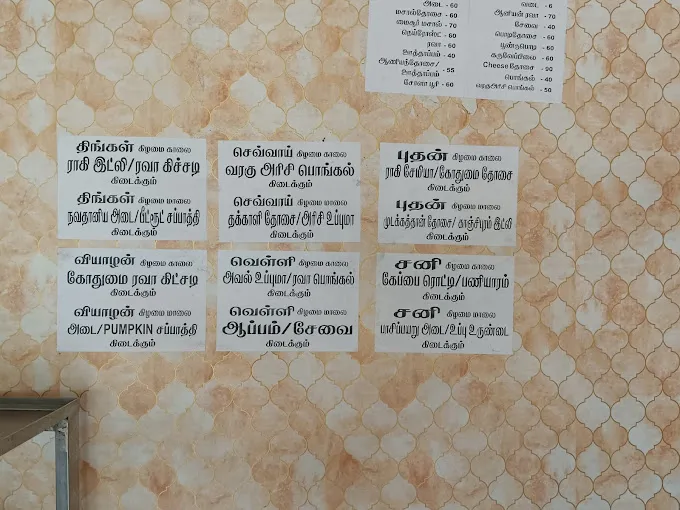 அடை - 60
மசால்தோசை - 60
மைசூர் மசால் - 70
நெய்ரோஸ்ட் - 60
ரவா - 60
ஊத்தாப்பம் - 40
ஆனியன்தோசை/
ஊத்தாப்பம் - 55
சோளா பூரி - 60
வடை - 6
ஆனியன் ரவா - 70
சேவை - 40
பொடிதோசை - 60
பூண்டுபொடி - 60
கருவேப்பிலை - 60
Cheese தோசை - 90
பொங்கல் - 40
வரகுஅரிசி பொங்கல் - 50
திங்கள் கிழமை காலை
ராகி இட்லி/ரவா கிச்சடி
கிடைக்கும்
திங்கள் கிழமை மாலை
நவதானிய அடை/பீட்ரூட் சப்பாத்தி
கிடைக்கும்
செவ்வாய் கிழமை காலை
வரகு அரிசி பொங்கல்
கிடைக்கும்
செவ்வாய் கிழமை மாலை
தக்காளி தோசை/அரிசி உப்புமா
கிடைக்கும்
புதன் கிழமை காலை
ராகி சேமியா/கோதுமை தோசை
கிடைக்கும்
புதன் கிழமை மாலை
முடக்கத்தான் தோசை/ காஞ்சிபுரம் இட்லி
கிடைக்கும்
வியாழன் கிழமை காலை
கோதுமை ரவா கிட்சடி
கிடைக்கும்
வியாழன் கிழமை மாலை
அடை/PUMPKIN சப்பாத்தி
கிடைக்கும்
வெள்ளி கிழமை காலை
அவல் உப்புமா/ரவா பொங்கல்
கிடைக்கும்
வெள்ளி கிழமை மாலை
ஆப்பம்/சேவை
கிடைக்கும்
சனி கிழமை காலை
கேப்பை ரொட்டி/பணியாரம்
கிடைக்கும்
சனி கிழமை மாலை
பாசிப்பயறு அடை/உப்பு உருண்டை
கிடைக்கும்